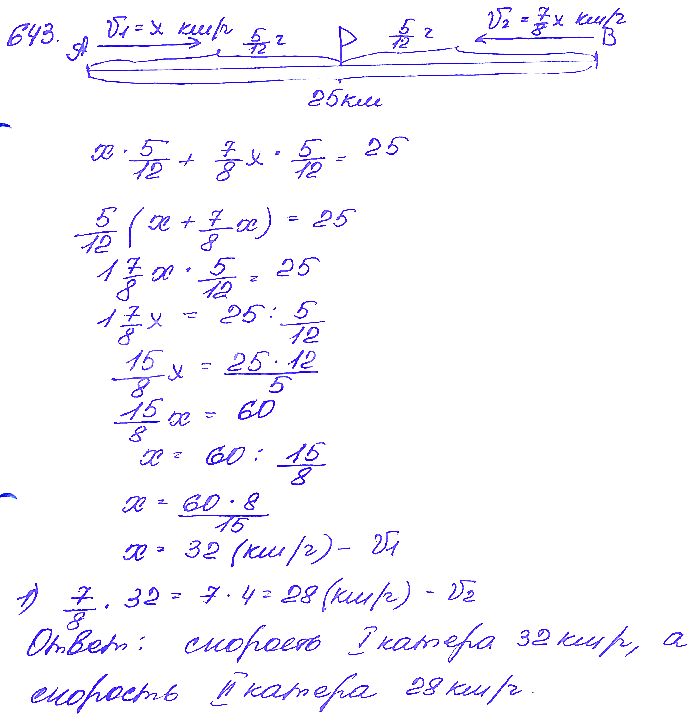 643. A V₁ = x км/ч 5/12 ч 5/12 ч V₂ = 7/8 x км/ч B
25 км
x · 5/12 + 7/8 x · 5/12 = 25
5/12 (x + 7/8 x) = 25
1 7/8 x · 5/12 = 25
1 7/8 x = 25 : 5/12
15/8 x = 25 · 12/5
15/8 x = 60
x = 60 : 15/8
x = 60 · 8/15
x = 32 (км/ч) – V₁
1) 7/8 · 32 = 7 · 4 = 28 (км/ч) – V₂
Ответ: скорость I катера 32 км/ч, а
скорость II катера 28 км/ч.